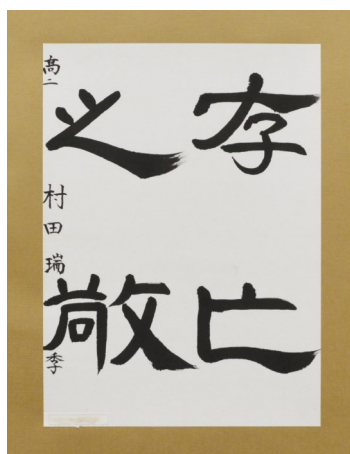 存亡
之敬
高二 村田 瑞季